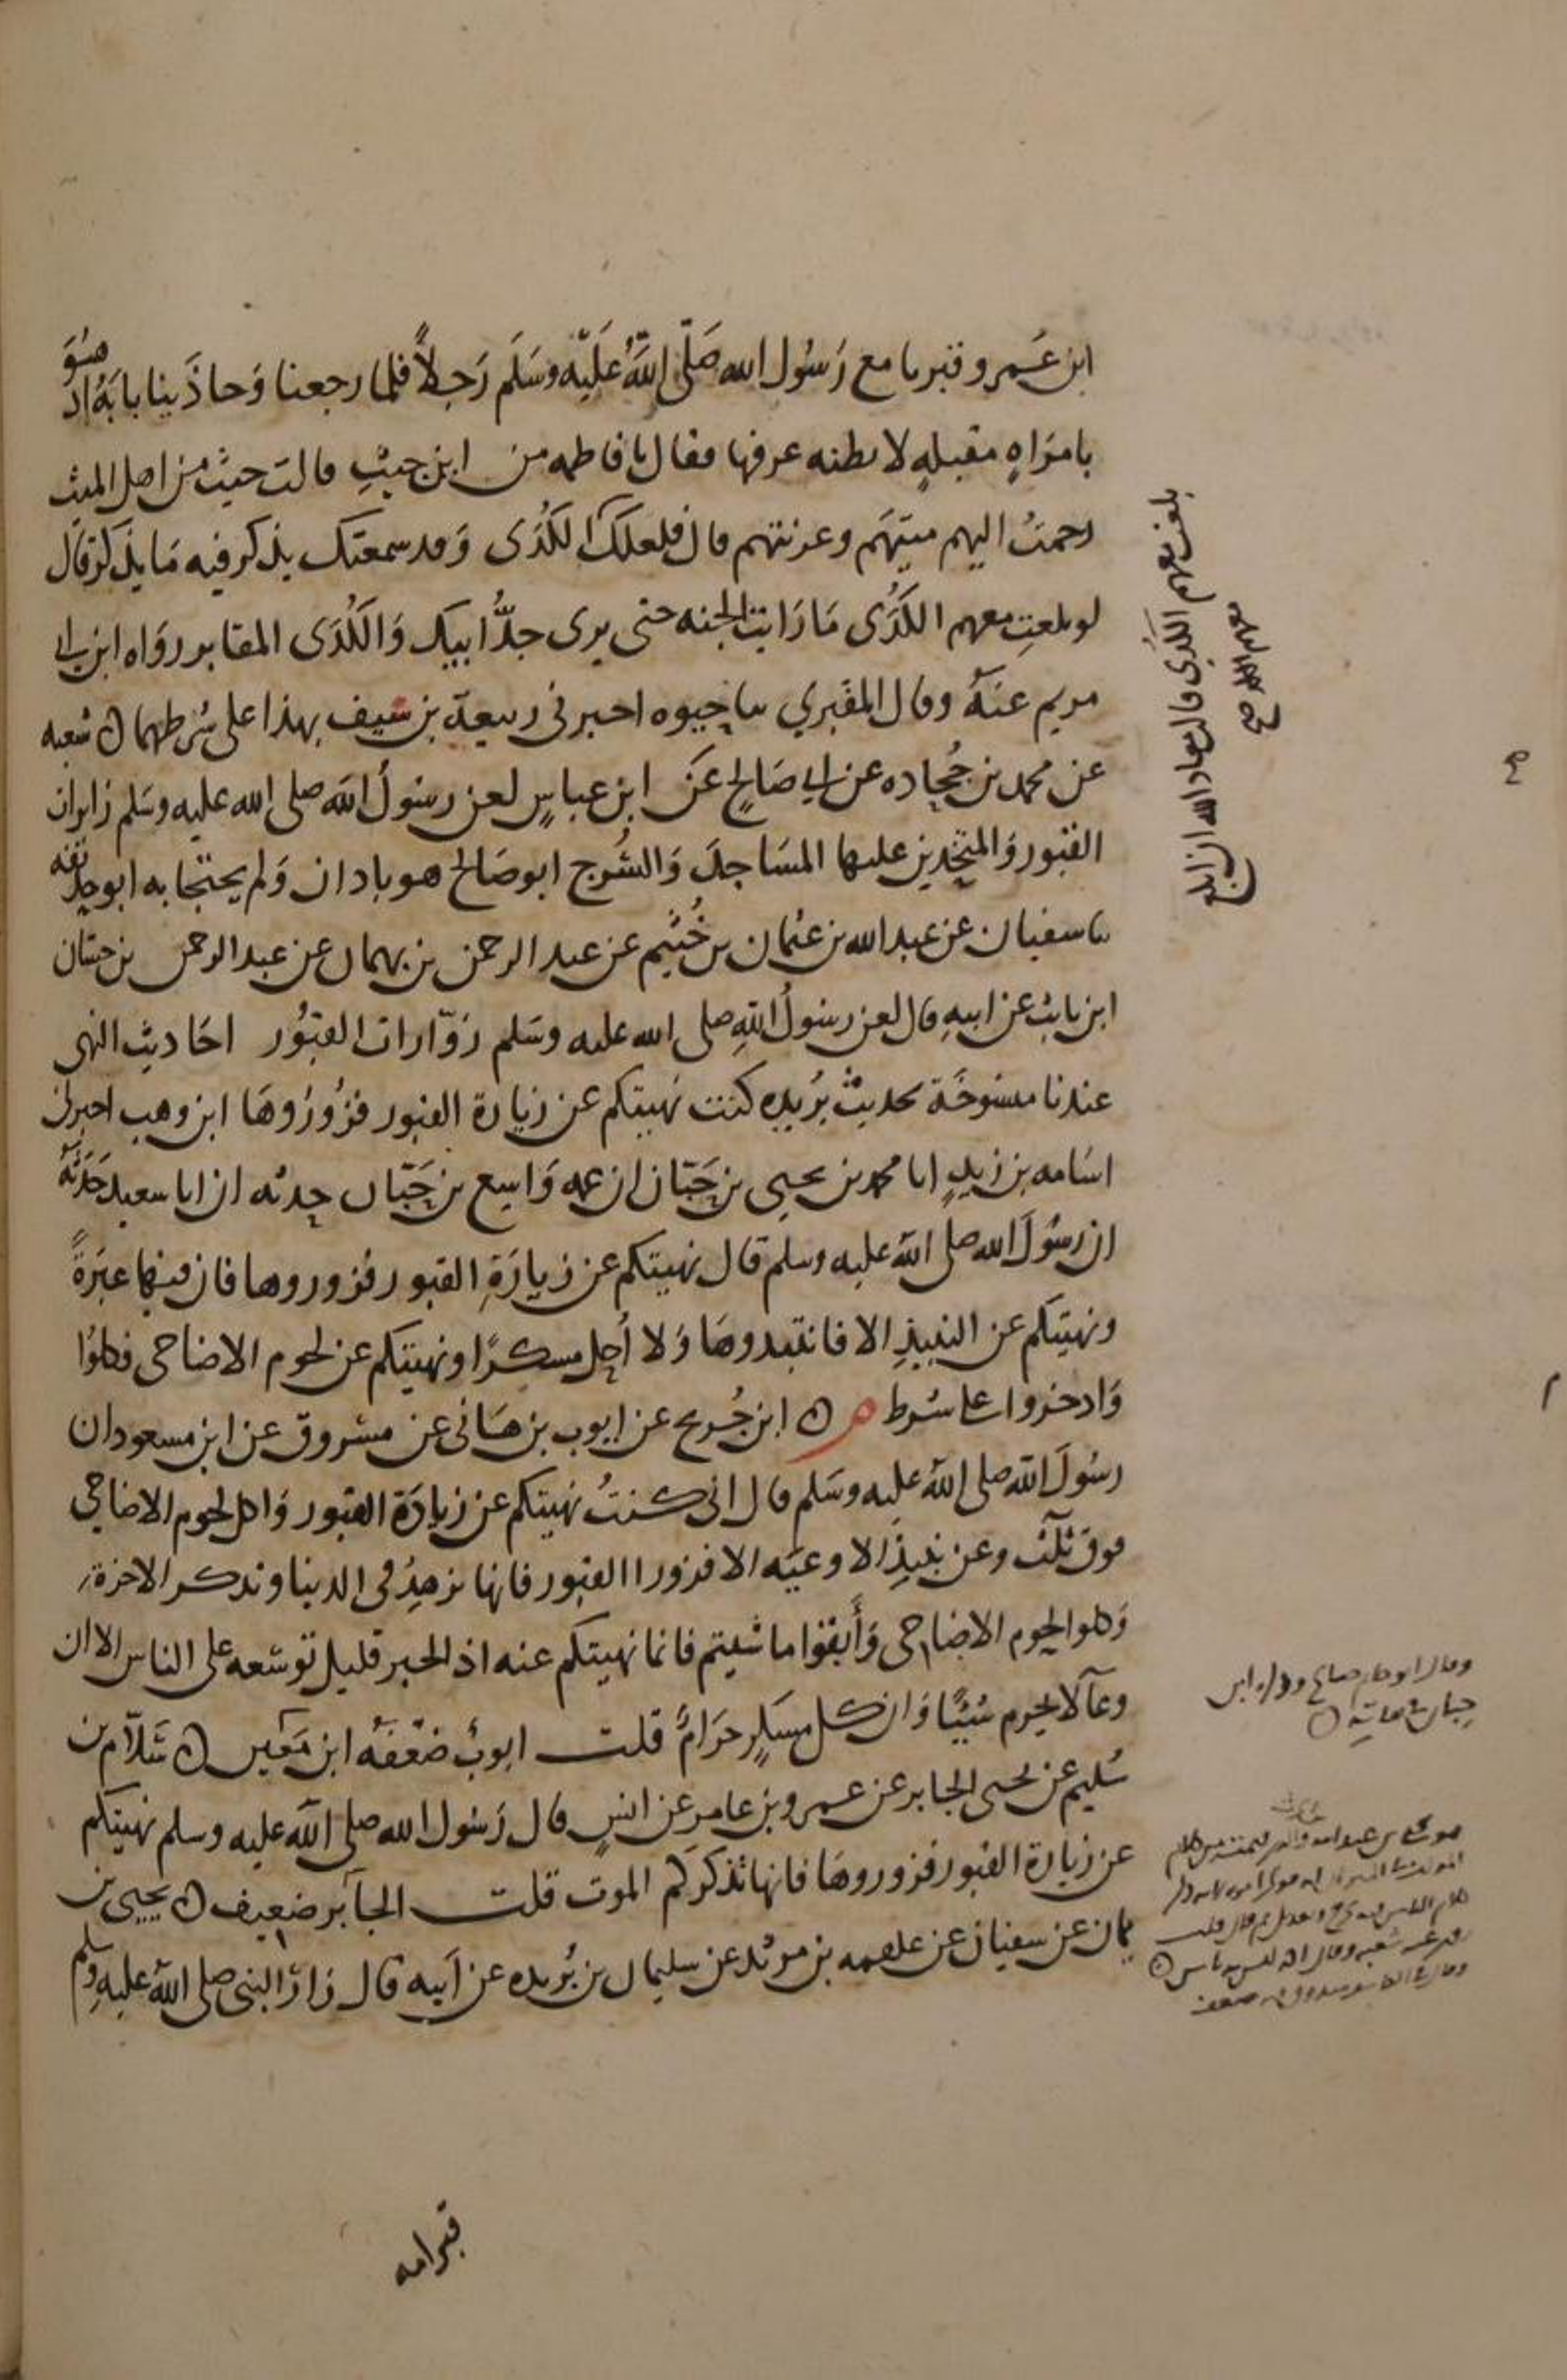 ابن عَمرو قبرنا مع رَسُول الله صَلّى اللَّهُ عَلَيْه وسَلَم رَجلاً فلما رجعنا وَحاذَينا بابَهُ اذ هُوَ
بامرَاهٍ مقبلهٍ لا نظنه عرفها فقال يا فاطمه من ابن جيتِ قالت جيت من اهل الميت
رحمتُ اليهم ميتَهَم وعزيتهم قال فلعلك الكُدَى وَقد سمعتك يذكر فيه مَا يذكر قال
لو بلغتِ معهم الكُدَى مَا رَايت الجنه حتى يرى جدُّ ابيك وَالكُدَى المقابر روَاه ابن ابي
مريم عنهُ وقال المقبري سا حيوه اخبرني ربيعة بن سيف بهذا على شرطهما ۞ شعبه
عن محمد بن جُحاده عن ابي صَالحٍ عَن ابن عباسٍ لعن رسُولُ الله صلى الله عليه وسَلم زايرات
القبور وَالمتخذين عليها المسَاجدَ وَالسُرج ابو صَالح هو باذان وَلم يحتجا به ابو حذيفه
سا سفيان عن عبد الله بن عثمان بن خُثيم عن عبد الرحمن بن بهمان عن عبد الرحمن بن حسَّان
ابن ثابت عن ابيهِ قال لعن رسُولُ اللهِ صلى الله عليه وسَلم زوّارات القبُور احَاديث النهى
عندنا منسُوخَة بحديث بُريده كنت نهيتكم عن زيارة القبور فزُورُوهَا ابن وهب اخبرني
اسَامه بن زيدٍ انا محمد بن يحيى بن حَبّان ان عمه وَاسِع بن حَبّان حدثه ان ابا سعيد حَدَثهُ
ان رسُولَ الله صلى الله عليه وسلم قال نهيتكم عن زيارَةِ القبور فزوروها فان فيها عبَرةً
ونهيتكم عن النبيذِ الا فانتبدوهَا وَلا أحِل مسكرًا ونهيتكم عن لحوم الاضاحى فكلوُا
وَادخروا على شرط م ۞ ابن جُريج عن ايوب بن هَانى عن مسروق عن ابن مسعود ان
رسُولَ الله صلى الله عليه وسَلم قال انى كنتُ نهيتكم عن زيارَة القبور وَاكل لحوم الاضاحي
فوق ثلث وعن نبيذِ الاوعيَه الا فزوروا القبور فانها تزهِدُ في الدنيا وتذكر الاخرة
وَكلوا لحوم الاضاحى وَأبقوا ما شيتم فانما نهيتكم عنه اذ الخير قليل توسَعه على الناس الا ان
وعآ لا يحرم شيئًا وَان كل مسكرٍ حرَامٌ قلت ايوبُ ضعّفَهُ ابن مَعين ۞ سَلاّم بن
سُليم عن يحيى الجابر عن عمرو بن عامر عن انسٍ قال رَسُول الله صلى الله عليه وسلم نهيتكم
عن زيارة القبور فزوروهَا فانها تذكركم الموت قلت الجآبر ضعيف ۞ يحيى بن
يمان عن سفيان عن علقمه بن مرثد عن سليمان بن بُريده عن أبيه قال زارَ النبى صلى الله عليهِ وسلم
قبر امه
بلغت معهم الكُدَى قالت معاذ الله ان ابلغ
معهم الكدى صح
وقال ابو حاتم صالح وذكره ابن
حبان في ثقاته ۞